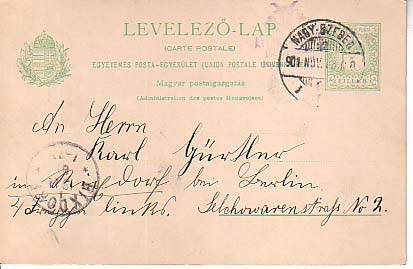 LEVELEZŐ-LAP
(CARTE POSTALE)
EGYETEMES POSTA-EGYESÜLET (UNION POSTALE UNIVERSELLE)
Magyar postaigazgatás
(Administration des postes Hongroises)
NAGY-SZEBEN
901 NOV.
FILLÉR
An Herrn
Karl Gürtler
in Rixdorf bei Berlin
4 Treppe links. Selchowerstrasse No 2.
RIXDORF